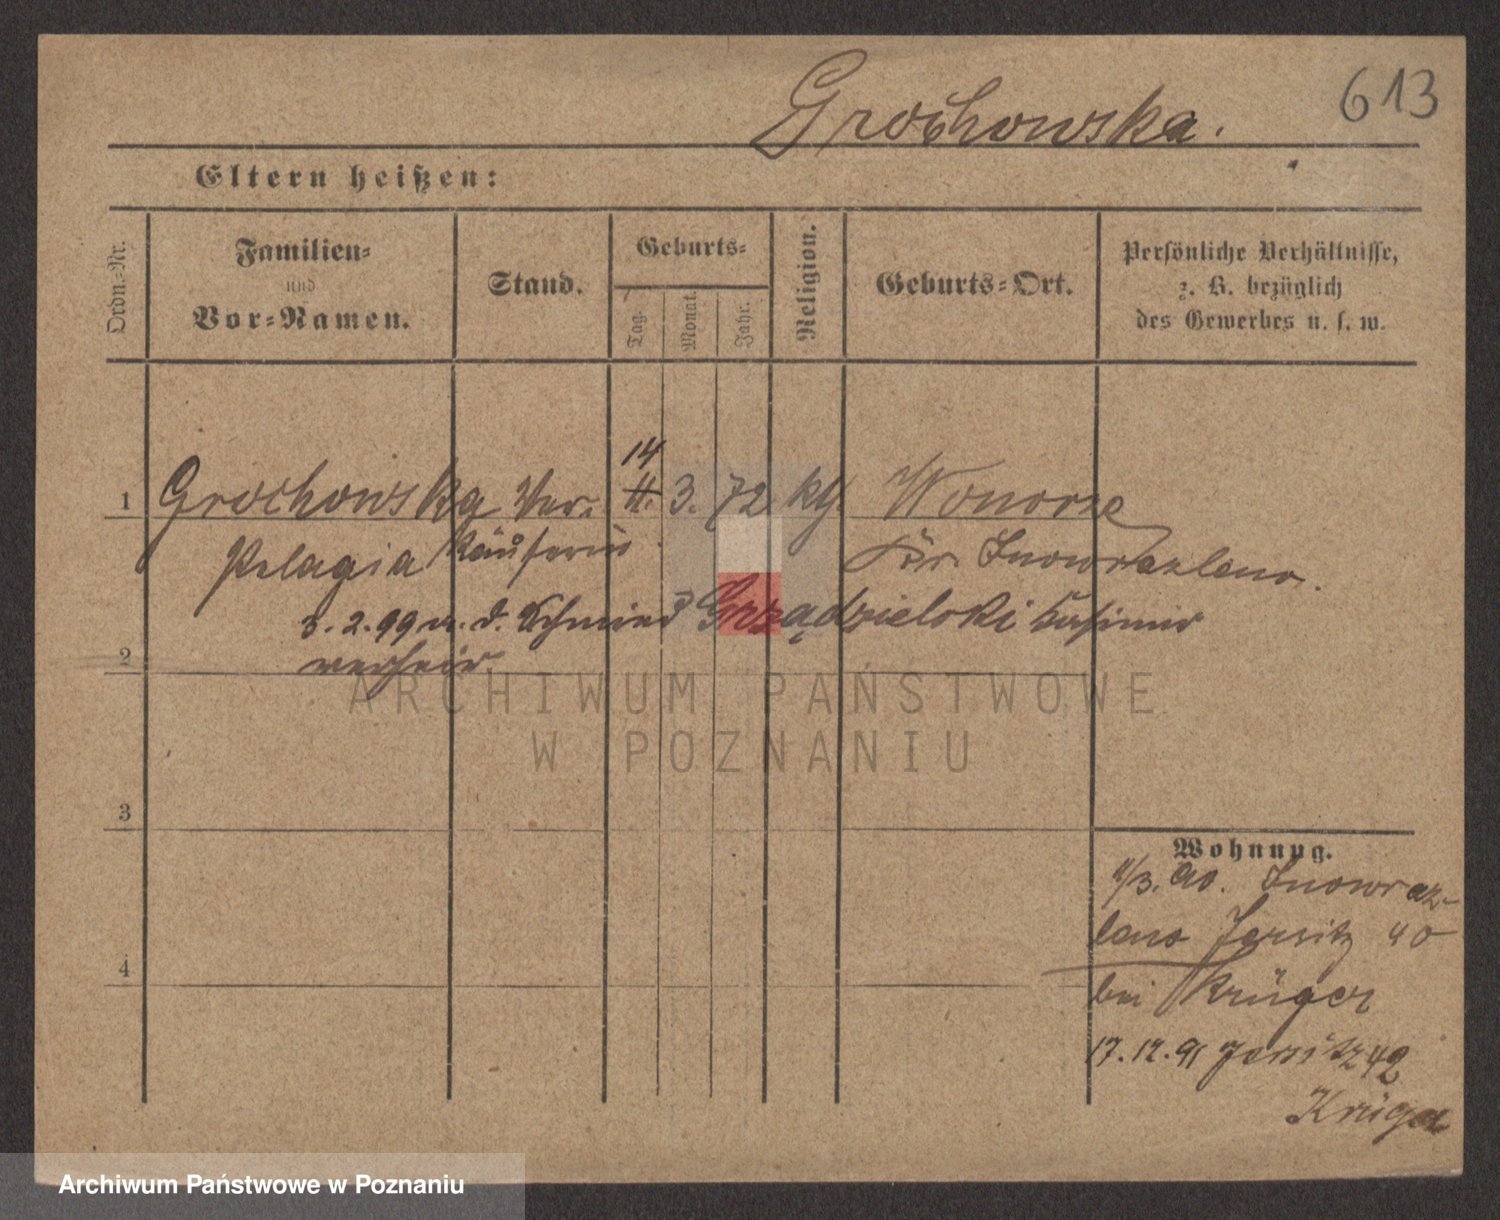 613
Grochowska.
Eltern heißen:
Ordn.-Nr.
Familien-
und
Vor-Namen.
Stand.
Geburts-
Tag.
Monat.
Jahr.
Religion.
Geburts-Ort.
Persönliche Verhältnisse,
z. B. bezüglich
des Gewerbes u. s. w.
14
1 Grochowska Ver- 11. 3. 72 kg. Wonorze
Pelagia käuferin Kr. Inowrazlaw.
3. 2. 99 m. d. Schmied Grządzielski Kasimir
2 verheir.
ARCHIWUM PAŃSTWOWE
W POZNANIU
3
Wohnung.
11/3. 90. Inowraz-
law Jersitz 40
4
bei Krüger
17. 12. 91 Jersitz 42
Krüger
Archiwum Państwowe w Poznaniu